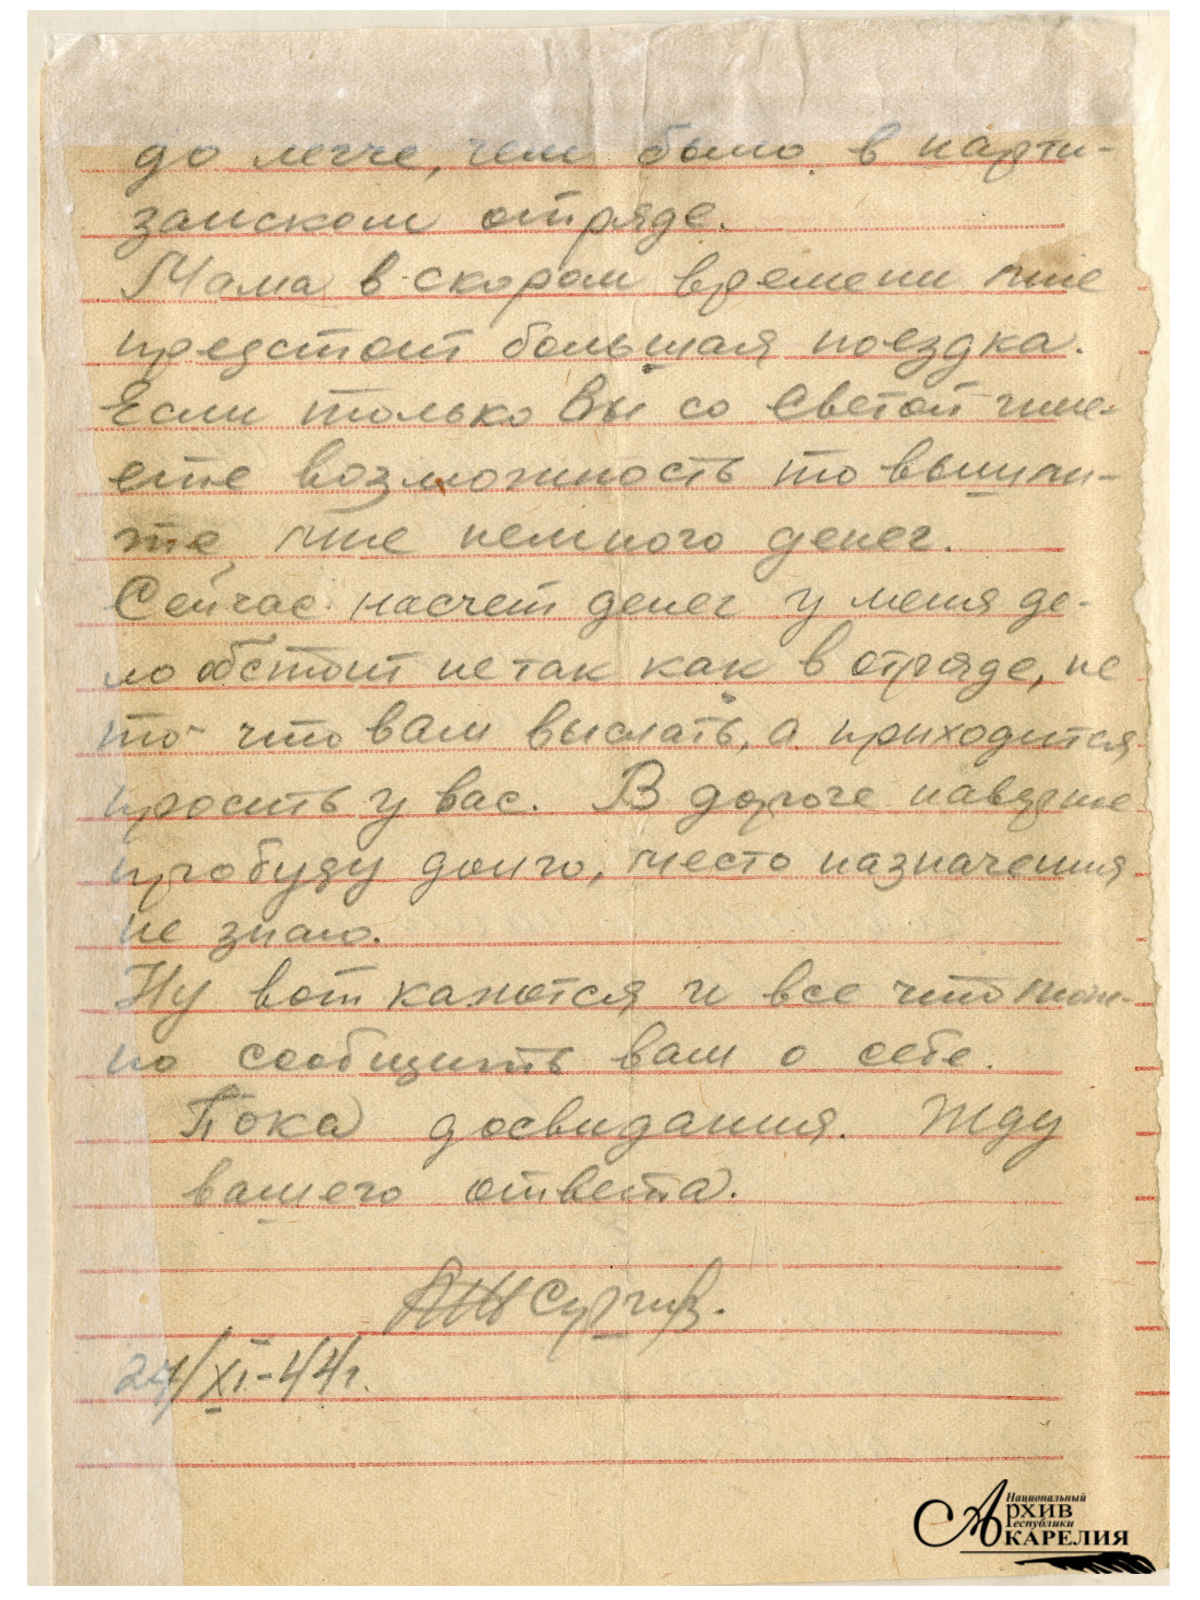 до легче, чем было в парти-
занском отряде.
Мама в скором времени мне
предстоит большая поездка.
Если только Вы со Светой име-
ете возможность то вышли-
те, мне немного денег.
Сейчас насчет денег у меня де-
ло обстоит не так как в отряде, не
то что вам выслать, а приходится
просить у вас. В дороге наверне
пробуду долго, место назначения
не знаю.
Ну вот кажется и все что мож-
но сообщить вам о себе.
Пока досвидания. Жду
вашего ответа.
24/XI-44г.
Национальный
Архив
Республики
Карелия